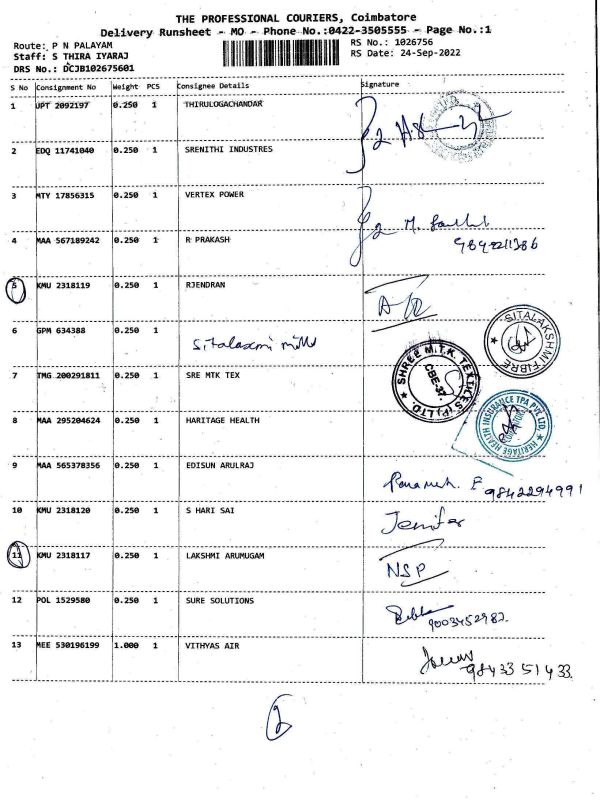 THE PROFESSIONAL COURIERS, Coimbatore
Delivery Runsheet - MO - Phone No.:0422-3505555 - Page No.:1
Route: P N PALAYAM RS No.: 1026756
Staff: S THIRA IYARAJ RS Date: 24-Sep-2022
DRS No.: DCJB102675601
S No Consignment No Weight PCS Consignee Details Signature
1 UPT 2092197 0.250 1 THIRULOGACHANDAR
2 EDQ 11741040 0.250 1 SRENITHI INDUSTRES
3 MTY 17856315 0.250 1 VERTEX POWER
4 MAA 567189242 0.250 1 R PRAKASH
5 KMU 2318119 0.250 1 RJENDRAN
6 GPM 634388 0.250 1 Sitalaxmi mills
SITALAKSHMI FIBRE
7 TMG 200291811 0.250 1 SRE MTK TEX
SHREE M.T.K. TEXTILES (P) LTD.
CBE-37.
8 MAA 295204624 0.250 1 HARITAGE HEALTH
HERITAGE HEALTH INSURANCE TPA PVT LTD
9 MAA 565378356 0.250 1 EDISUN ARULRAJ
9842294991
10 KMU 2318120 0.250 1 S HARI SAI Jenifer
11 KMU 2318117 0.250 1 LAKSHMI ARUMUGAM NSP
12 POL 1529580 0.250 1 SURE SOLUTIONS
9003452987
13 MEE 530196199 1.000 1 VITHYAS AIR
98433 51433